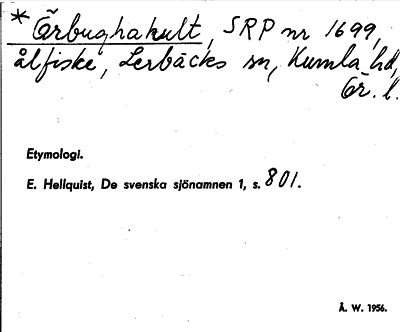 * Örbughakult, SRP nr 1699,
ålfiske, Lerbäcks sn, Kumla hd,
Ör. l.
Etymologi.
E. Hellquist, De svenska sjönamnen 1, s. 801.
Å. W. 1956.